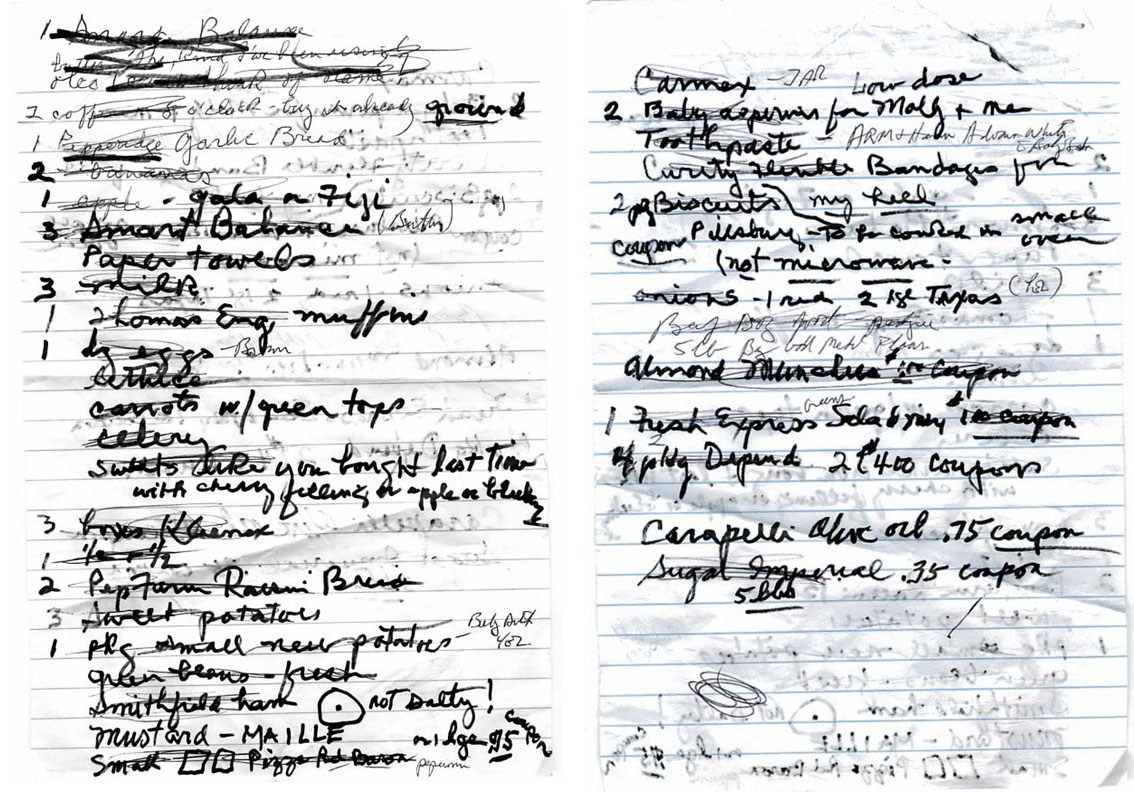 1 Smart Balance
butter the kind I've been using
2 coffee - 8 o'clock - buy it already ground
1 Pepperidge Garlic Bread
2 bananas
1 apple - gala or Fiji
3 Smart Balance
Paper towels
3 milk
1 Thomas Eng muffins
1 dz eggs -
lettuce
carrots w/green tops
celery
sweets like you bought last time
with cherry filling or apple or
3 boxes Kleenex
1 1/2 + 1/2
2 Pep Farm Raisin Bread
3 Sweet potatoes
1 pkg small new potatoes -
green beans - fresh
Smithfield ham not salty!
mustard - MAILLE
Small Pizza Red Baron
coupon
Carmex - JAR Low dose
2 Baby aspirins for Molly + me
Toothpaste - ARM + Hammer Advance White
Curity Flexible Bandages for
my heel
2 pg Biscuits
coupon Pillsbury - to be cooked in small oven
(not microwave -
onions - 1 red 2 lge Texas
5 lb
Almond Munchies coupon
1 Fresh Express greens Salad mix $1 coupon
pkg Depend 2 $400 coupons
Carapelli Olive oil .75 coupon
Sugar Imperial .35 coupon
5 lbs